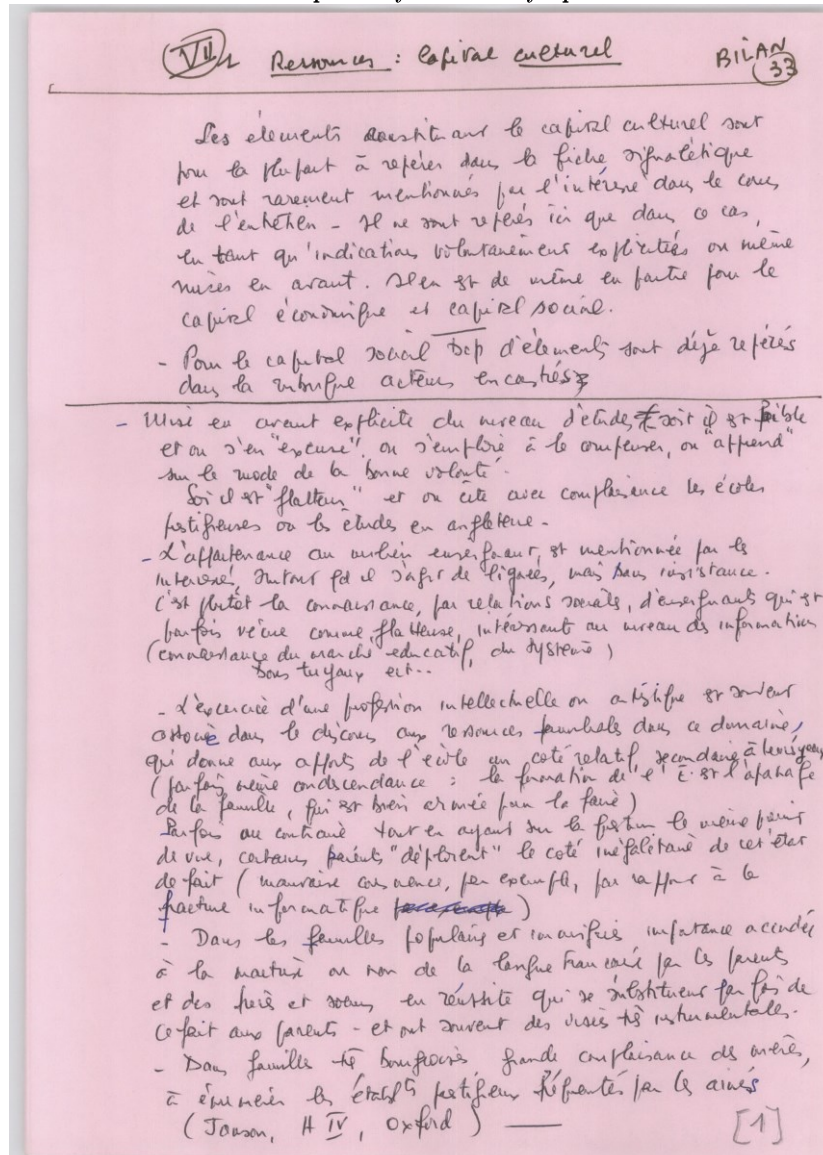 VII Ressources : Capital culturel BILAN 33
Les élements constituant le capital culturel sont
pour la plupart à repérer dans la fiche signalétique
et sont rarement mentionnés par l'intéressé dans le cours
de l'entretien - Il ne sont repérés ici que dans ce cas,
en tant qu'indications volontairement explicitées ou même
mises en avant. Il en est de même en partie pour le
capital économique et capital social.
- Pour le capital social bcp d'élements sont déjà repérés
dans la rubrique acteurs encastrés
- Mise en avant explicite du niveau d'études soit il est faible
et on s'en "excuse", on s'emploie à le compenser, on "apprend"
sur le mode de la bonne volonté.
Soi il est "flatteur" et on cite avec complaisance les écoles
prestigieuses ou les études en angleterre -
- L'appartenance au milieu enseignant, est mentionnée par les
interessés, surtout qd il s'agit de lignées, mais sans insistance.
C'est plutôt la connaissance, par relations sociales, d'enseignants qui est
parfois vécue comme flatteuse, intéressante au niveau des informations
(connaissance du marché éducatif, du système)
bons tuyaux ect..
- L'exercice d'une profession intellectuelle ou artistique est souvent
associée dans le discours aux ressources familiales dans ce domaine,
qui donne aux apports de l'école un coté relatif, secondaire à leurs yeux
(parfois même condescendance : la formation de l'E. est l'apanage
de la famille, qui est bien armée pour la faire)
Parfois au contraire tout en ayant sur la question le même point
de vue, certains parents "déplorent" le coté inégalitaire de cet état
de fait (mauvaise conscience, par exemple, par rapport à la
fracture informatique)
- Dans les familles populaires et immigrées importance accordée
à la maitrise ou non de la langue française par les parents
et des frères et soeurs en réussite qui se substituent parfois de
ce fait aux parents - et ont souvent des visées très instrumentales.
- Dans familles très bourgeoises grande complaisance des mères,
à énumérer les établts prestigieux fréquentés par les ainés
(Janson, H IV, Oxford)
[1]